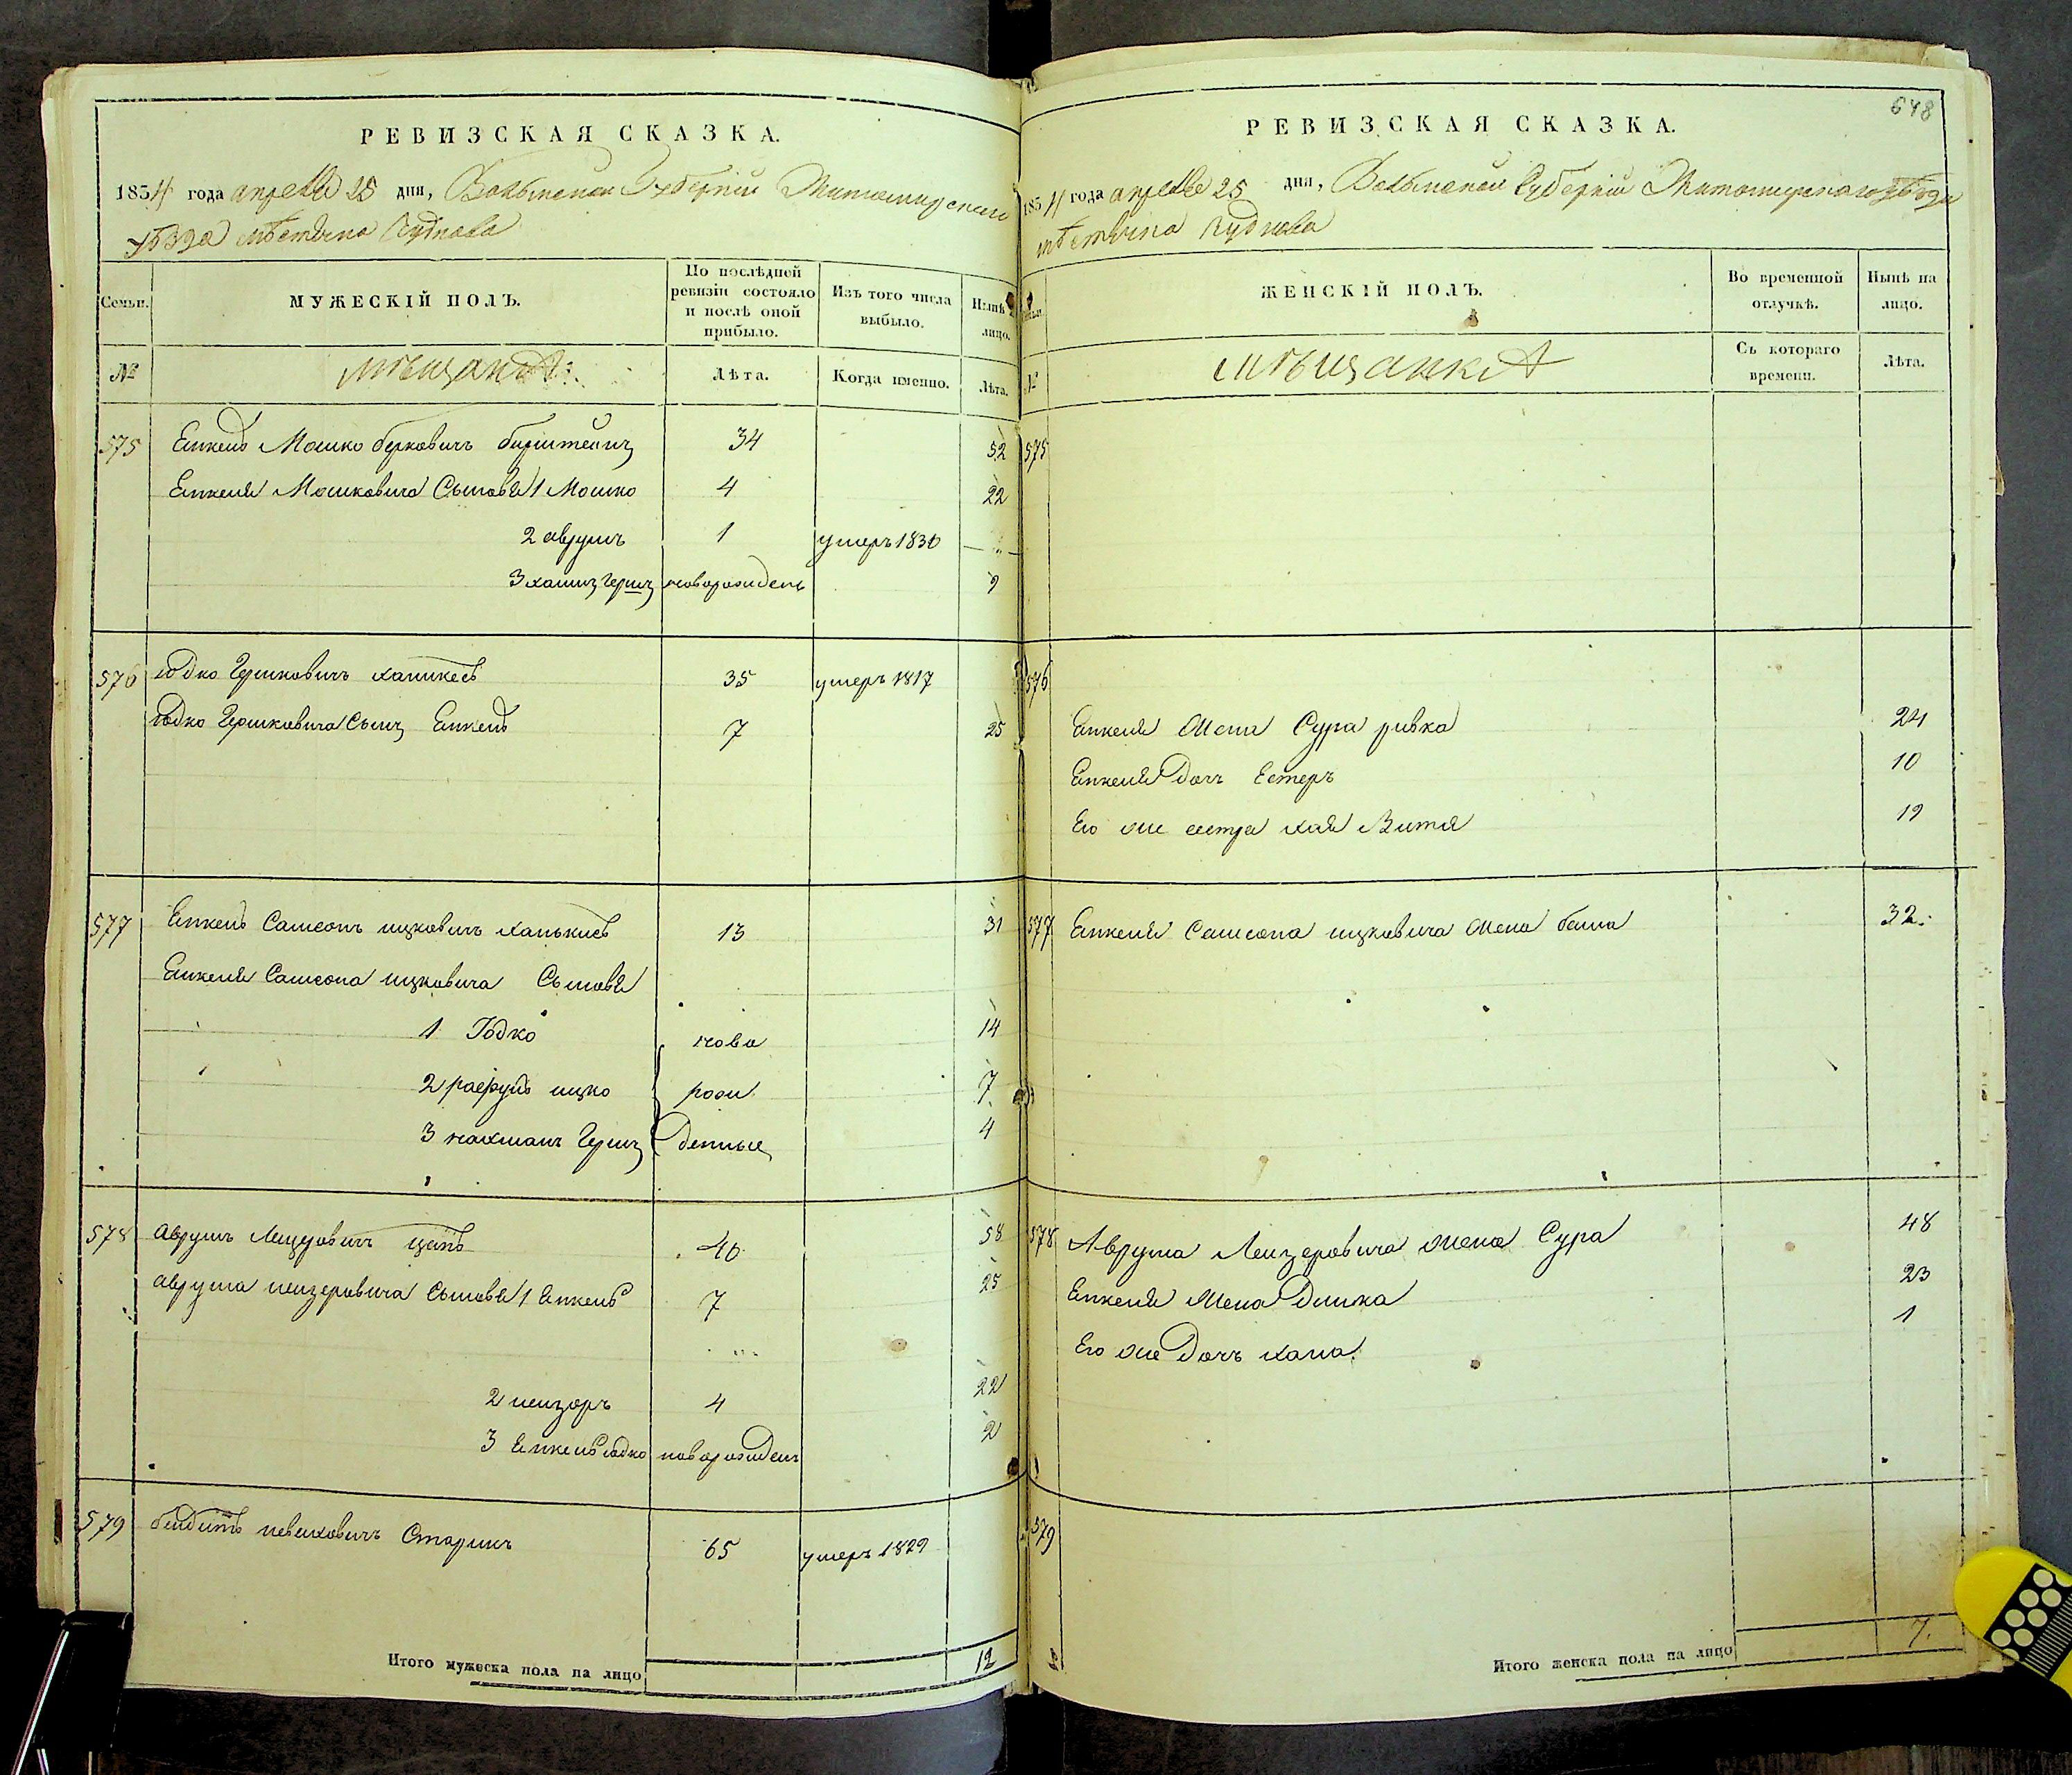 РЕВИЗСКАЯ СКАЗКА.
1834 года апреля 25 дня, Волынской Губернии Житомирского
уѣзда мѣстечка Чуднова
Семьи.
МУЖЕСКІЙ ПОЛЪ.
По послѣдней ревизіи состояло и послѣ оной прибыло.
Изъ того числа выбыло.
Нынѣ на лицо.
№
мѣщанѣ
Лѣта.
Когда именно.
Лѣта.
575 Янкель Мошко Беркович 34 52
Янкеля Мошковича Сыновя 1 Мошко 4 22
2 аврумъ 1 умеръ 1830
3 хаимъ Гершъ новорожденъ 9
576 Юдко Гершковичъ 35 умеръ 1817
Юдко Гершковича Сынъ Янкель 7 25
577 Янкель Самсонъ ицковичъ 13 31
Янкеля Самсона ицковича Сыновя
1 Юдко ново 14
2 рафуль ицко рож 7
3 нахманъ Гершъ денные 4
578 аврумъ Лейзеровичъ цапъ 40 58
аврума лейзеровича Сыновя 1 Янкель 7 25
2 лейзоръ 4 22
3 Янкель юдко новорожденъ 2
579 Старикъ 65 умеръ 1829
Итого мужеска пола на лицо 12
648
РЕВИЗСКАЯ СКАЗКА.
1834 года апреля 25 дня, Волынской Губерніи Житомирского уѣзда
мѣстечка Чуднова
ЖЕНСКІЙ ПОЛЪ.
Во временной отлучкѣ.
Нынѣ на лицо.
№
мѣщанкѣ
Съ котораго времени.
Лѣта.
575
576
Янкеля жена Сура ривка 24
Янкеля дочь Естеръ 10
Его же сестра хая 19
577 Янкеля Самсона ицковича жена бася 32
578 Аврума Лейзеровича жена Сура 48
Янкеля жена 23
Его же дочь хана 1
579
Итого женска пола на лицо 7.